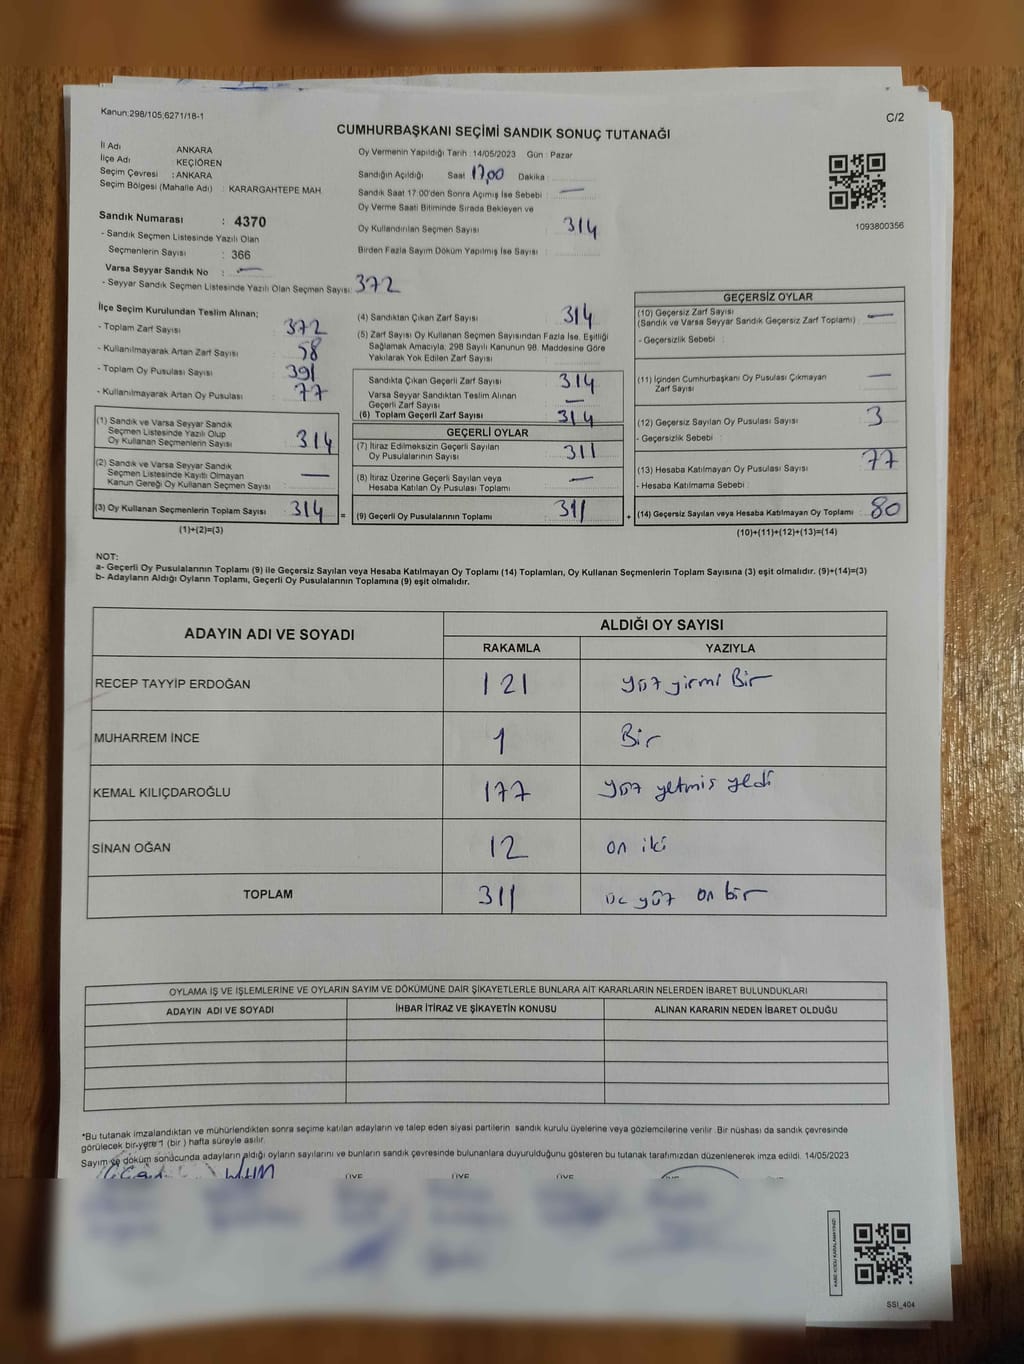 Kanun:298/105;6271/18-1
C/2
CUMHURBAŞKANI SEÇİMİ SANDIK SONUÇ TUTANAĞI
İl Adı ANKARA
İlçe Adı KEÇİÖREN
Seçim Çevresi : ANKARA
Seçim Bölgesi (Mahalle Adı) : KARARGAHTEPE MAH.
Oy Vermenin Yapıldığı Tarih : 14/05/2023 Gün : Pazar
Sandığın Açıldığı Saat 17,00 Dakika :
Sandık Saat 17:00'den Sonra Açımış İse Sebebi : —
Oy Verme Saati Bitiminde Sırada Bekleyen ve
Oy Kullandırılan Seçmen Sayısı : 314
Birden Fazla Sayım Döküm Yapılmış İse Sayısı :
1093800356
Sandık Numarası : 4370
- Sandık Seçmen Listesinde Yazılı Olan
Seçmenlerin Sayısı : 366
Varsa Seyyar Sandık No : —
- Seyyar Sandık Seçmen Listesinde Yazılı Olan Seçmen Sayısı : 372
İlçe Seçim Kurulundan Teslim Alınan;
- Toplam Zarf Sayısı 372
- Kullanılmayarak Artan Zarf Sayısı 58
- Toplam Oy Pusulası Sayısı 391
- Kullanılmayarak Artan Oy Pusulası 77
(1) Sandık ve Varsa Seyyar Sandık
Seçmen Listesinde Yazılı Olup
Oy Kullanan Seçmenlerin Sayısı : 314
(2) Sandık ve Varsa Seyyar Sandık
Seçmen Listesinde Kayıtlı Olmayan
Kanun Gereği Oy Kullanan Seçmen Sayısı : —
(3) Oy Kullanan Seçmenlerin Toplam Sayısı : 314 =
(1)+(2)=(3)
(4) Sandıktan Çıkan Zarf Sayısı 314
(5) Zarf Sayısı Oy Kullanan Seçmen Sayısından Fazla İse, Eşitliği
Sağlamak Amacıyla; 298 Sayılı Kanunun 98. Maddesine Göre
Yakılarak Yok Edilen Zarf Sayısı :
Sandıkta Çıkan Geçerli Zarf Sayısı : 314
Varsa Seyyar Sandıktan Teslim Alınan
Geçerli Zarf Sayısı : —
(6) Toplam Geçerli Zarf Sayısı : 314
GEÇERLİ OYLAR
(7) İtiraz Edilmeksizin Geçerli Sayılan
Oy Pusulalarının Sayısı : 311
(8) İtiraz Üzerine Geçerli Sayılan veya
Hesaba Katılan Oy Pusulası Toplamı : —
(9) Geçerli Oy Pusulalarının Toplamı : 311 +
GEÇERSİZ OYLAR
(10) Geçersiz Zarf Sayısı
(Sandık ve Varsa Seyyar Sandık Geçersiz Zarf Toplamı) : —
- Geçersizlik Sebebi :
(11) İçinden Cumhurbaşkanı Oy Pusulası Çıkmayan
Zarf Sayısı : —
(12) Geçersiz Sayılan Oy Pusulası Sayısı : 3
- Geçersizlik Sebebi :
(13) Hesaba Katılmayan Oy Pusulası Sayısı : 77
- Hesaba Katılmama Sebebi :
(14) Geçersiz Sayılan veya Hesaba Katılmayan Oy Toplamı : 80
(10)+(11)+(12)+(13)=(14)
NOT:
a- Geçerli Oy Pusulalarının Toplamı (9) ile Geçersiz Sayılan veya Hesaba Katılmayan Oy Toplamı (14) Toplamları, Oy Kullanan Seçmenlerin Toplam Sayısına (3) eşit olmalıdır. (9)+(14)=(3)
b- Adayların Aldığı Oyların Toplamı, Geçerli Oy Pusulalarının Toplamına (9) eşit olmalıdır.
ADAYIN ADI VE SOYADI
ALDIĞI OY SAYISI
RAKAMLA YAZIYLA
RECEP TAYYİP ERDOĞAN 121 yüz yirmi Bir
MUHARREM İNCE 1 Bir
KEMAL KILIÇDAROĞLU 177 yüz yetmiş yedi
SİNAN OĞAN 12 on iki
TOPLAM 311 üç yüz on bir
OYLAMA İŞ VE İŞLEMLERİNE VE OYLARIN SAYIM VE DÖKÜMÜNE DAİR ŞİKAYETLERLE BUNLARA AİT KARARLARIN NELERDEN İBARET BULUNDUKLARI
ADAYIN ADI VE SOYADI İHBAR İTİRAZ VE ŞİKAYETİN KONUSU ALINAN KARARIN NEDEN İBARET OLDUĞU
*Bu tutanak imzalandıktan ve mühürlendikten sonra seçime katılan adayların ve talep eden siyasi partilerin sandık kurulu üyelerine veya gözlemcilerine verilir. Bir nüshası da sandık çevresinde
görülecek bir yere 1 (bir ) hafta süreyle asılır.
Sayım ve döküm sonucunda adayların aldığı oyların sayılarını ve bunların sandık çevresinde bulunanlara duyurulduğunu gösteren bu tutanak tarafımızdan düzenlenerek imza edildi. 14/05/2023
ÜYE ÜYE ÜYE
SSI_404